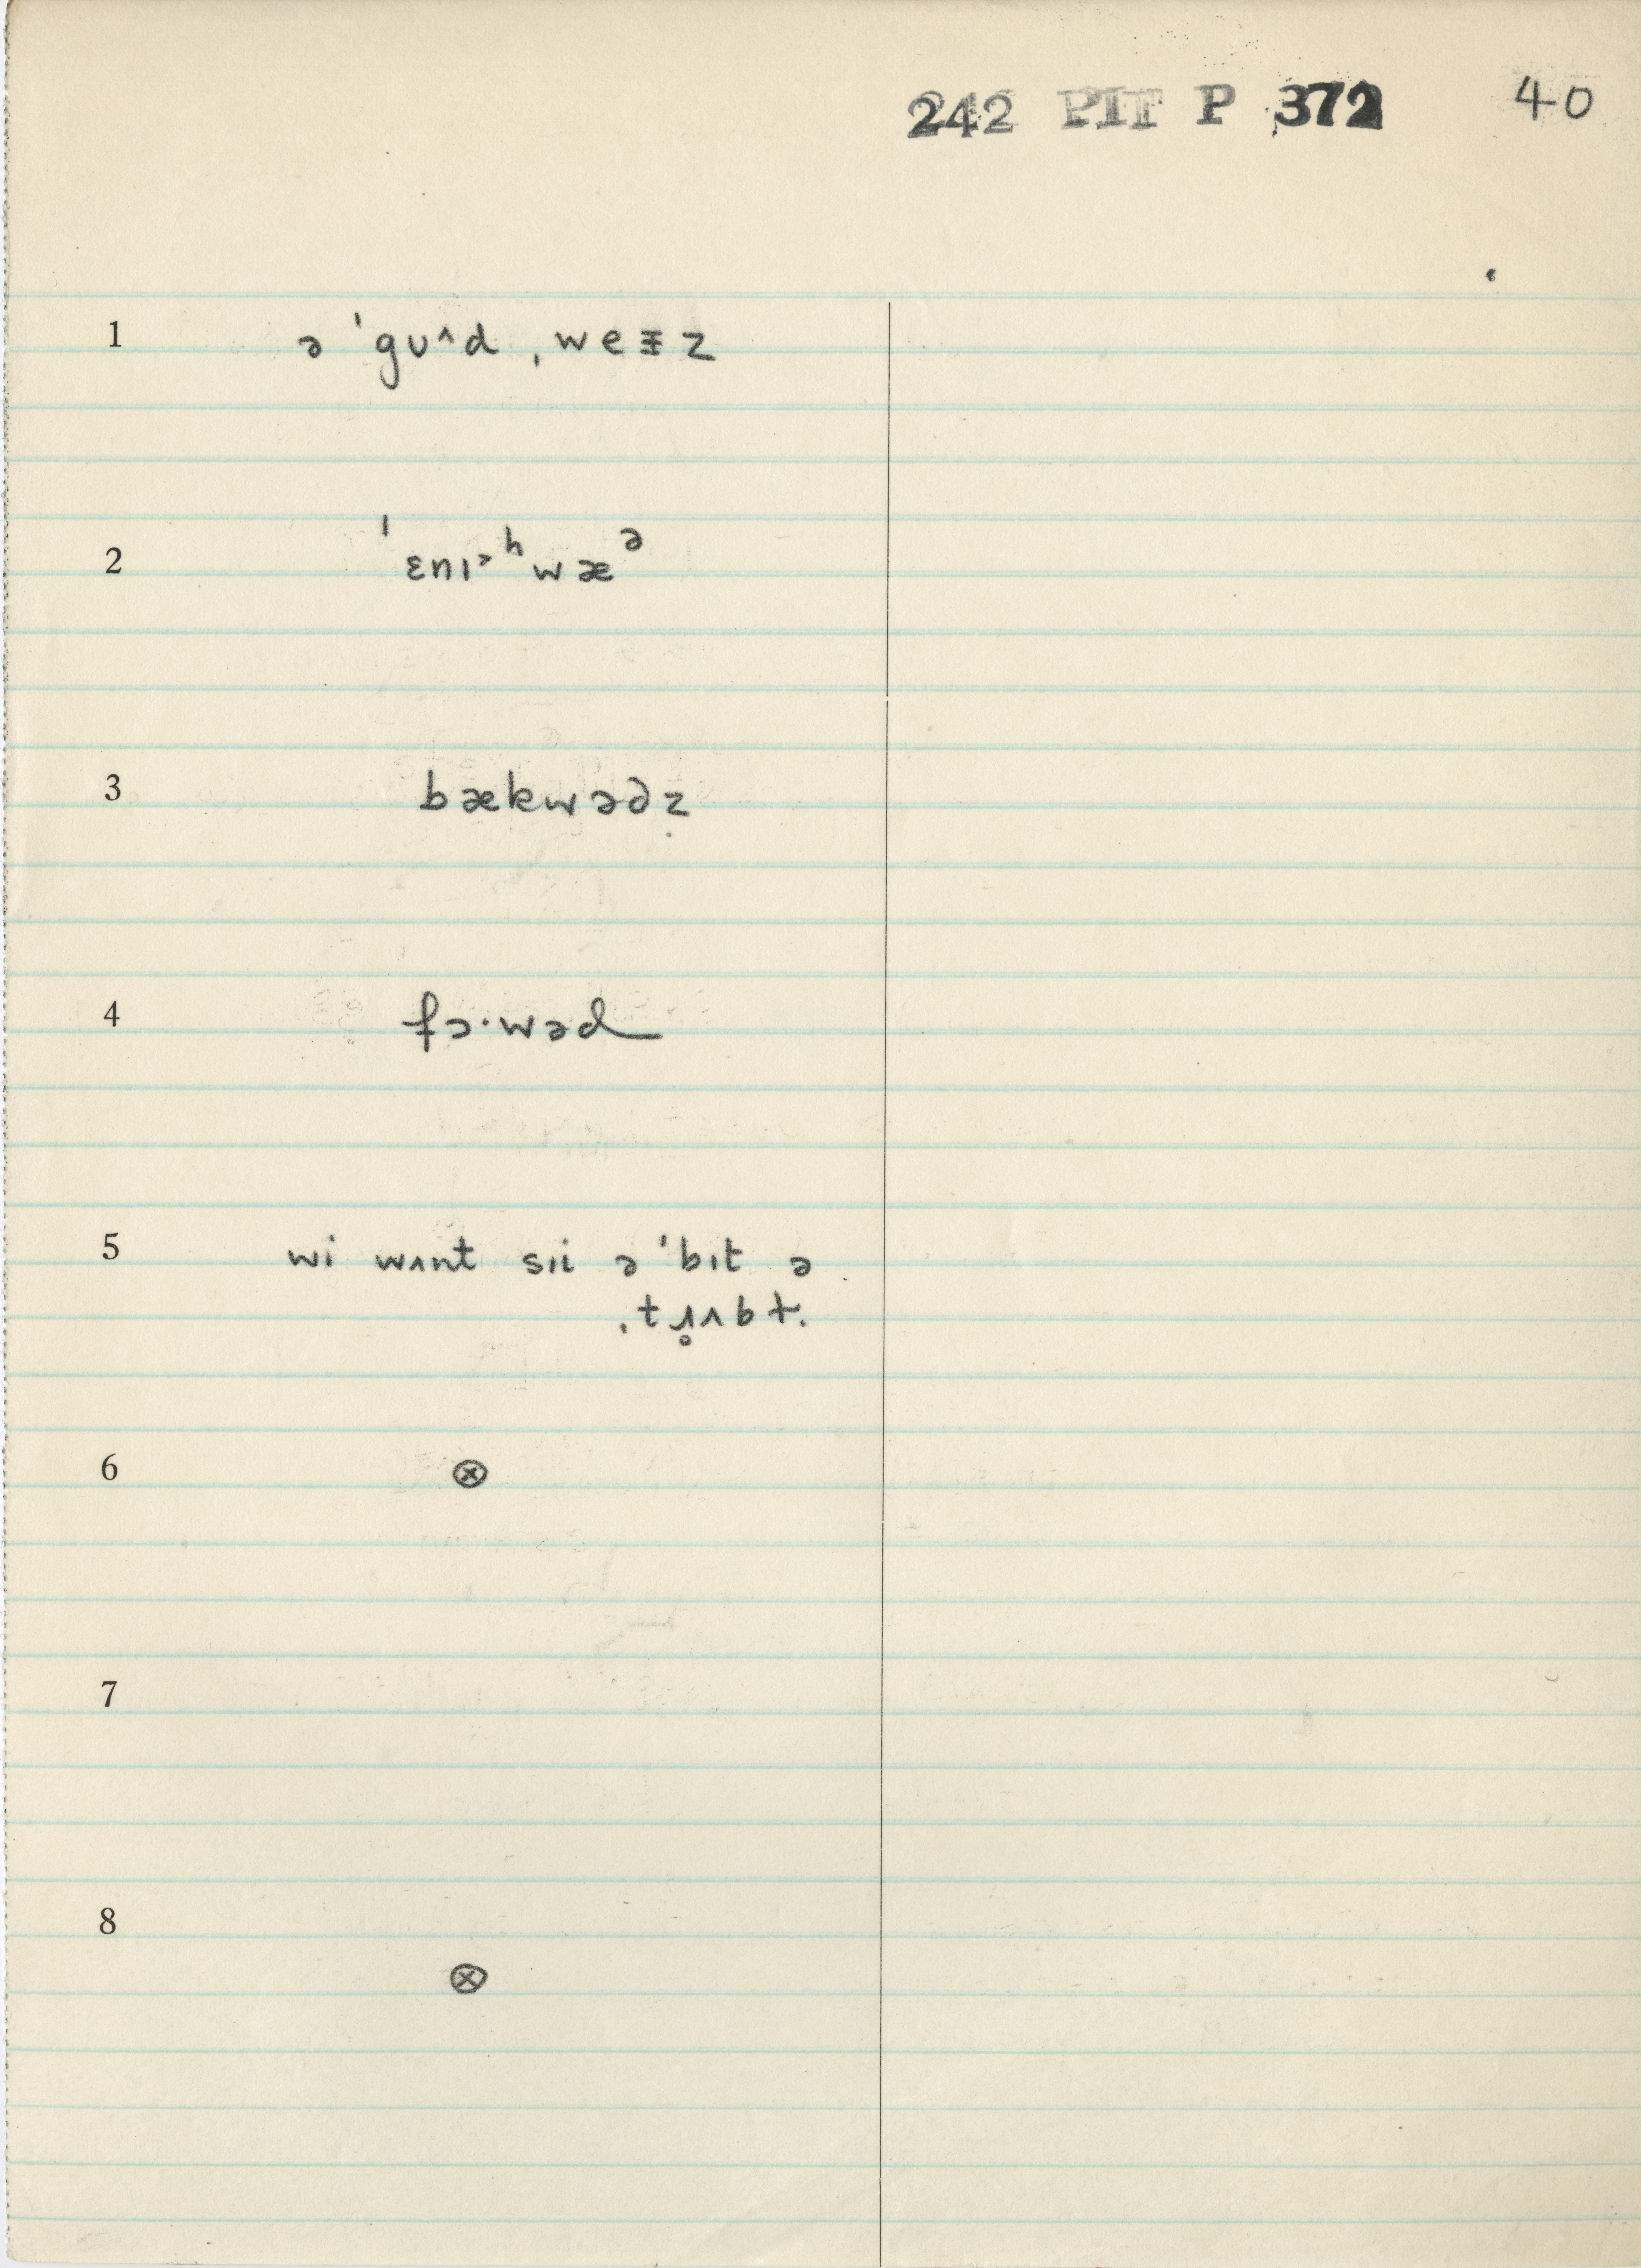 242 PIT P 372 40
1 ə ˈgʊ^d ˌweᵻz
2 ˈɛnɪ˃ ʰwæᵊ
3 bækwəəz
4 fɔ·wəd
5 wi wʌnt sɪi ə ˈbɪt ə
ˌtɹ̥ʌbɫ̩
6 ⊗
7
8 ⊗